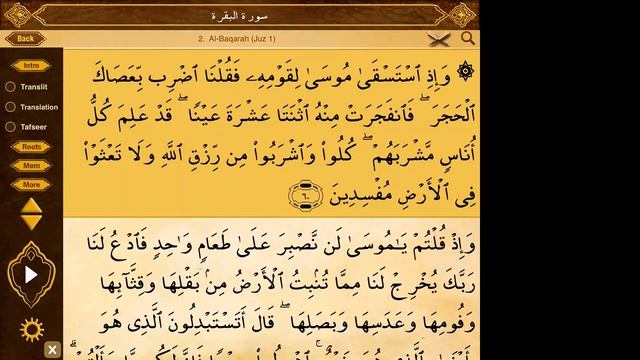 سورة البقرة
Back
2. Al-Baqarah (Juz 1)
Intro
Translit
Translation
Tafseer
Roots
Mem
More
۞ وَإِذِ ٱسْتَسْقَىٰ مُوسَىٰ لِقَوْمِهِۦ فَقُلْنَا ٱضْرِب بِّعَصَاكَ
ٱلْحَجَرَ ۖ فَٱنفَجَرَتْ مِنْهُ ٱثْنَتَا عَشْرَةَ عَيْنًا ۖ قَدْ عَلِمَ كُلُّ
أُنَاسٍ مَّشْرَبَهُمْ ۖ كُلُوا۟ وَٱشْرَبُوا۟ مِن رِّزْقِ ٱللَّهِ وَلَا تَعْثَوْا۟
فِى ٱلْأَرْضِ مُفْسِدِينَ ٦٠
وَإِذْ قُلْتُمْ يَٰمُوسَىٰ لَن نَّصْبِرَ عَلَىٰ طَعَامٍ وَٰحِدٍ فَٱدْعُ لَنَا
رَبَّكَ يُخْرِجْ لَنَا مِمَّا تُنۢبِتُ ٱلْأَرْضُ مِنۢ بَقْلِهَا وَقِثَّآئِهَا
وَفُومِهَا وَعَدَسِهَا وَبَصَلِهَا ۖ قَالَ أَتَسْتَبْدِلُونَ ٱلَّذِى هُوَ